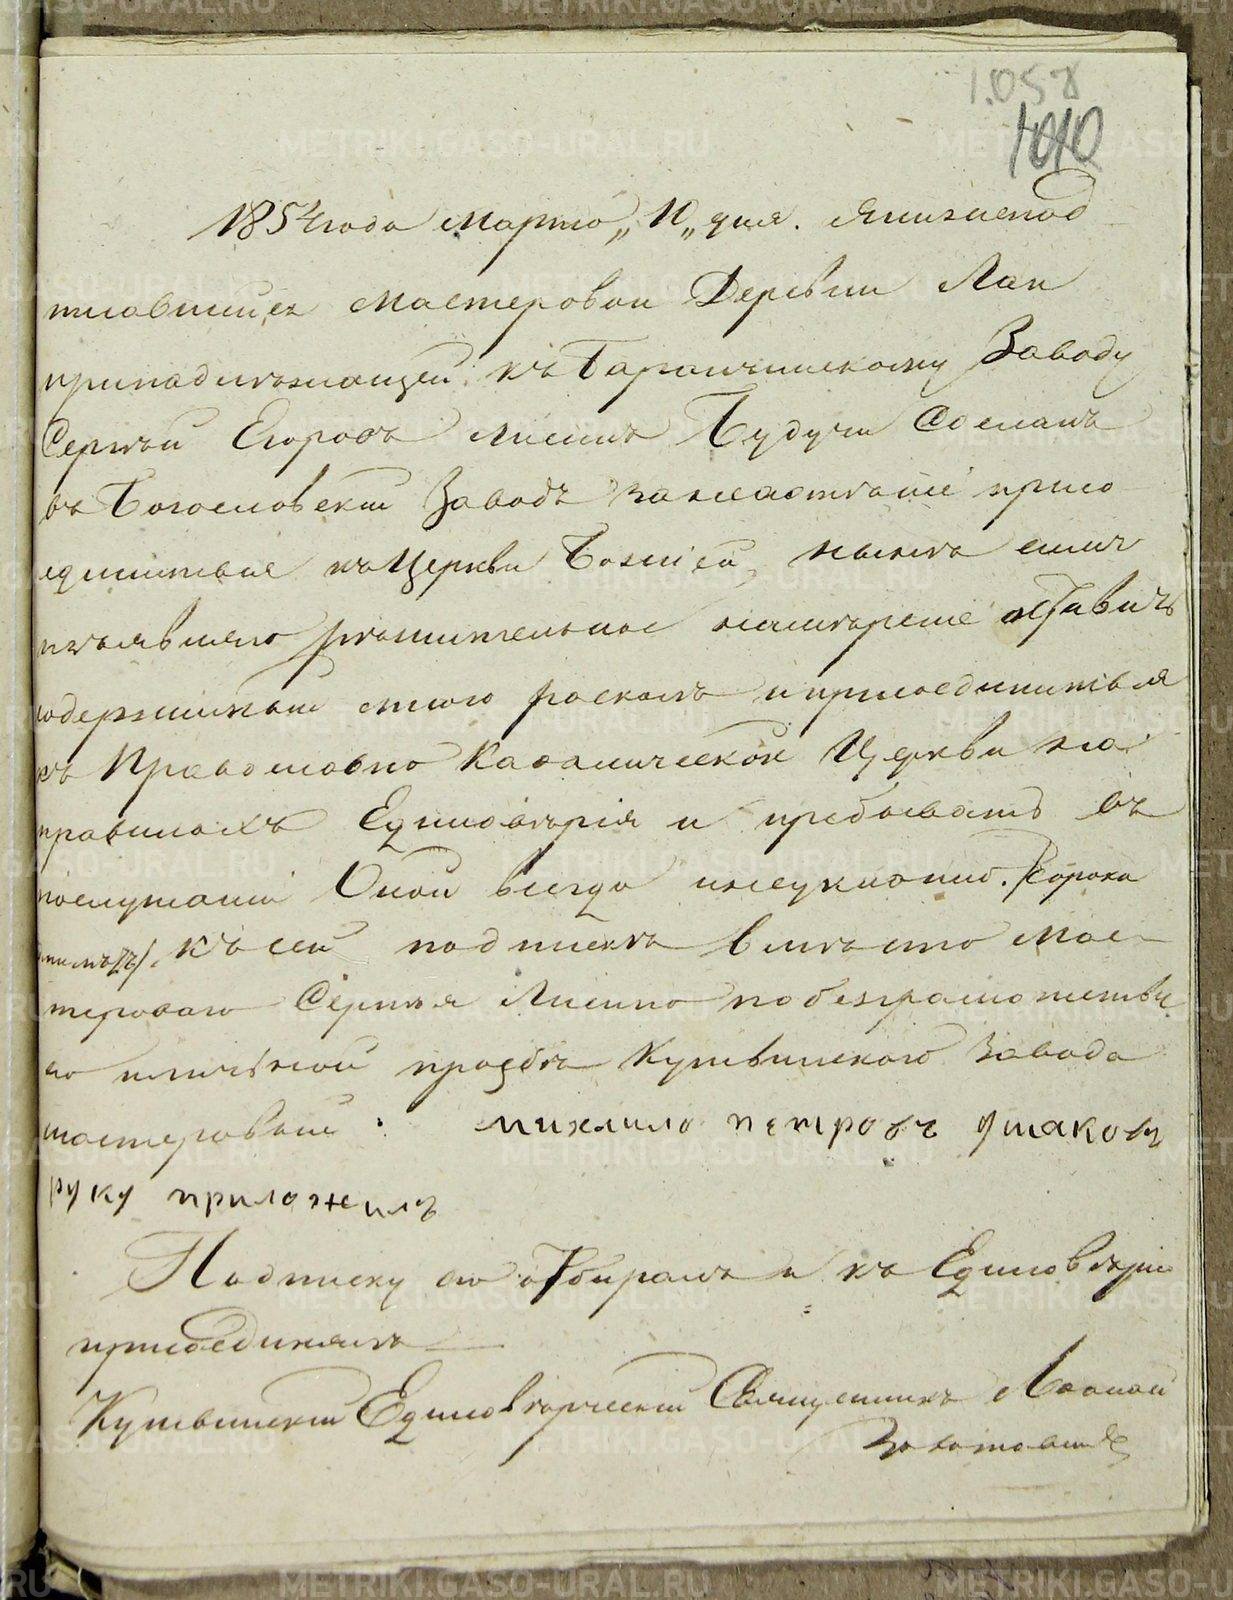 1.058
1010
1854 года Марта „10„ дня. Я нижепод
писавшийся мастеровой Деревни Лаи
принадлежающей къ Баранчинскому Заводу
Сергѣй Егоровъ Лисинъ Будучи Сосланъ
въ Богословскій Заводъ за неастояніе присо
единится къ Церкви Божіей, нынѣ симъ
изъявляю рѣшительное намѣреніе оставить
содержимый мною расколъ и присоединиться
къ Православно Каѳолической Церкви на
правилахъ Единовѣрія и пребывать въ
послушаніи Оной всегда неизмѣнно. /Сорока
лѣтъ/. Къ сей подпискѣ вмѣсто мас-
тероваго Сергѣя Лисина по безграмотству
его и личной прозбѣ Кушвинского завода
мастеровый: михаило петровъ ушаковъ
руку приложилъ
Подписку сію отбиралъ и къ Единовѣрію
присоединялъ
Кушвинскій Единовѣрческій Священникъ
METRIKI.GASO-URAL.RU